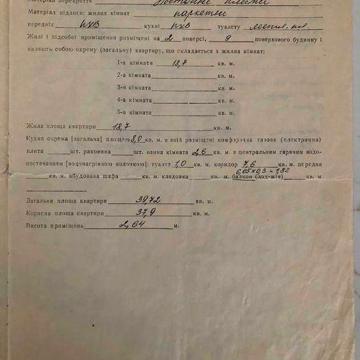 Матеріал підлоги: жилих кімнат паркетні
передніх ЖХВ кухні ЖХВ туалету
Жилі і підсобні приміщення розміщені на 2 поверсі, 9 поверхового будинку і
являють собою окрему (загальну) квартиру, що складається з жилих кімнат:
1-а кімната 18,7 кв. м.
2-а кімната кв. м.
3-а кімната кв. м.
4-а кімната кв. м.
5-а кімната кв. м.
Жила площа квартири 18,7 кв. м.
Кухня окрема [загальна] площею 8,0 кв. м. в якій розміщені комфорочна газова (електрична)
плита шт. раковина шт. ванна кімната 2,6 кв. м. з центральним гарячим водо-
постачанням [водонагрівною колонкою]; туалет 1,0 кв. м. коридор 7,6 кв. м. передня
кв. м. вбудована шафа кв. м. кладовка кв. м. балкон (лоджія) кв. м
Загальна площа квартири 39,72 кв. м.
Корисна площа квартири 37,9 кв. м.
Висота приміщень 2,64 м.